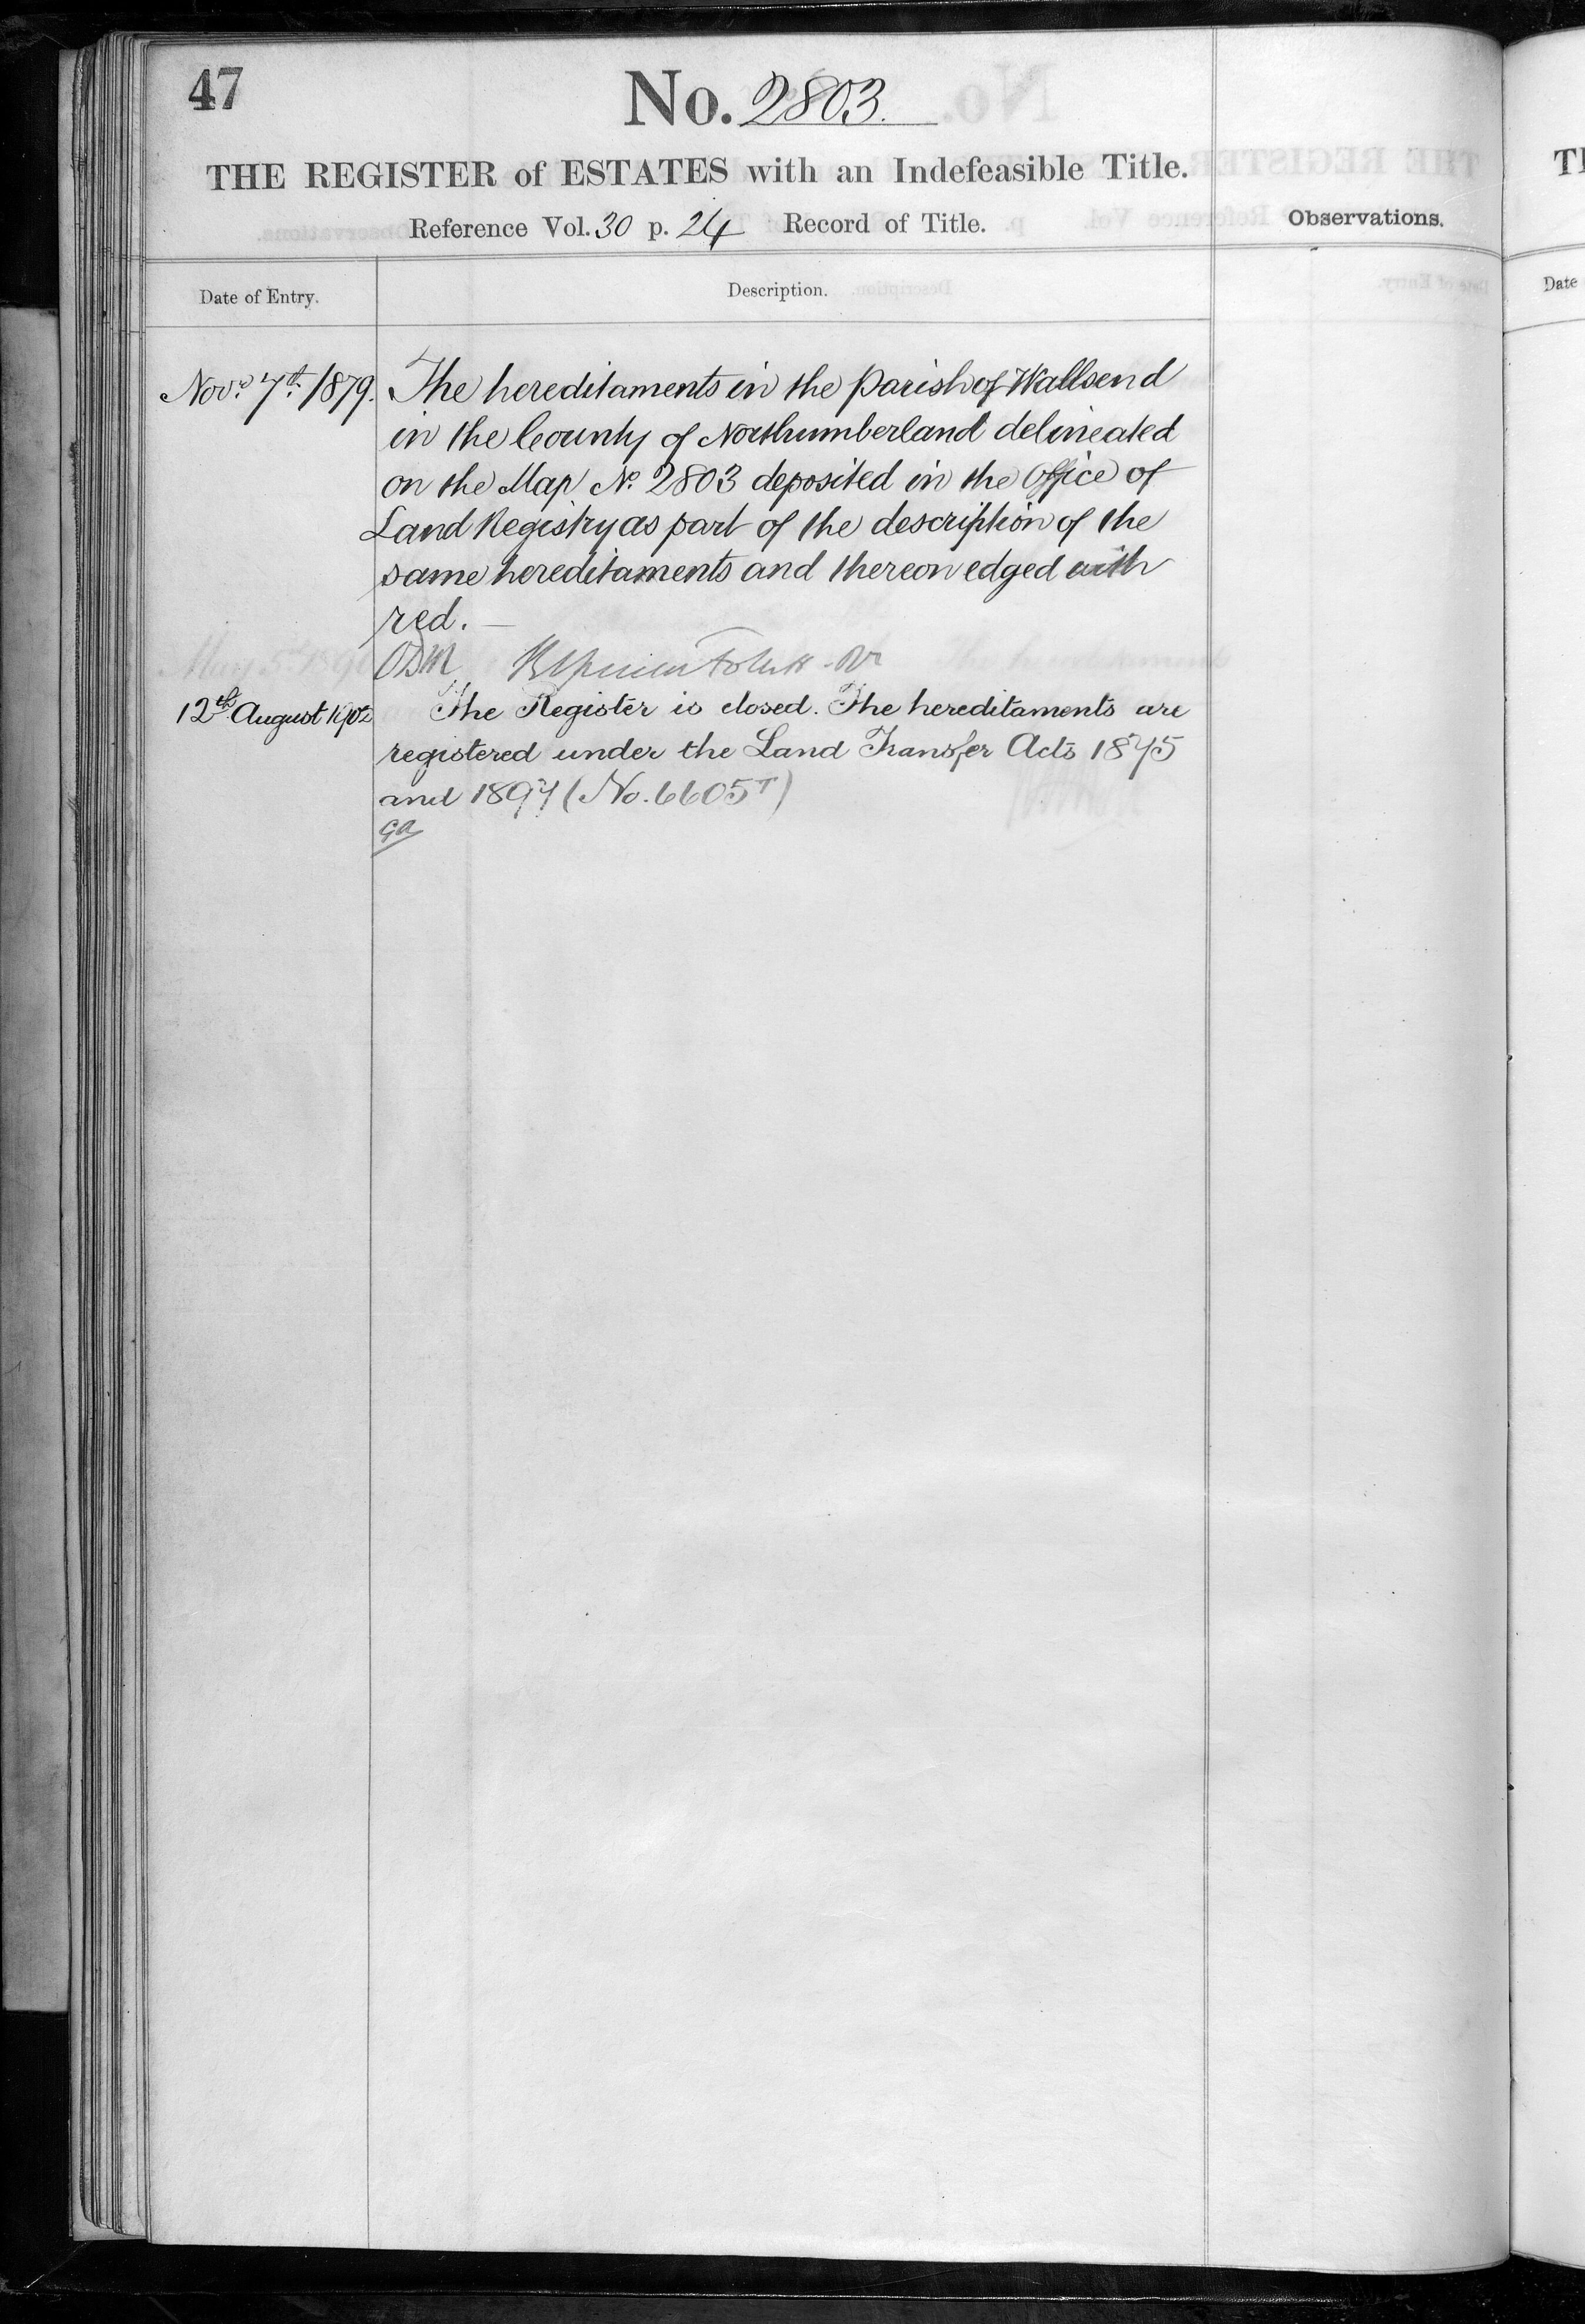 47
No. 2803.
THE REGISTER of ESTATES with an Indefeasible Title.
Reference Vol. 30 p. 24 Record of Title.
Observations.
Date of Entry.
Description.
Novr. 7th. 1879. The hereditaments in the Parish of Wallsend
in the County of Northumberland delineated
on the Map No. 2803 deposited in the Office of
Land Registry as part of the description of the
same hereditaments and thereon edged with
red. —
12th August 1902 The Register is closed. The hereditaments are
registered under the Land Transfer Acts 1875
and 1897 (No. 6605T)
GA
Date